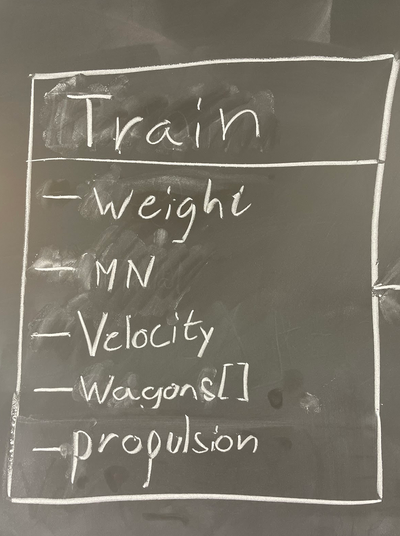 Train
- Weight
- MN
- Velocity
- Wagons[]
- propulsion